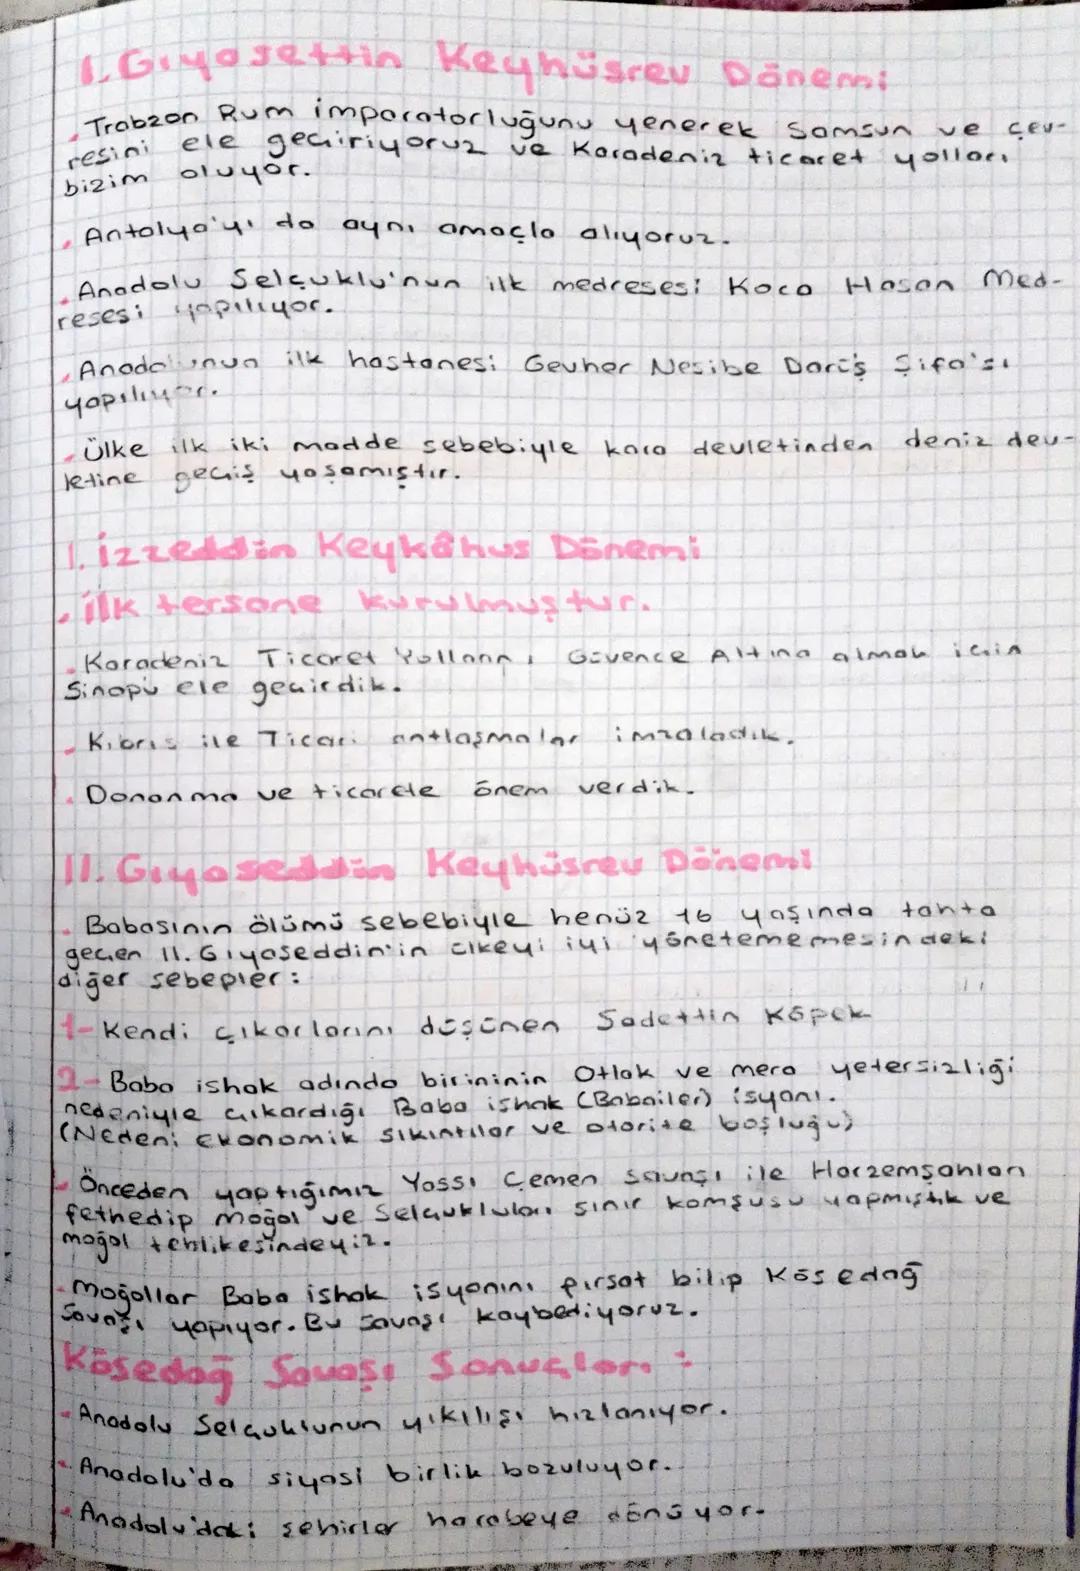 I. Gıyasettin Keyhüsrev Dönemi
. Trabzon Rum imparatorluğunu yenerek Samsun ve çev-
resini ele geçiriyoruz ve Karadeniz ticaret yolları
bizim oluyor.
. Antalya'yı da aynı amaçla alıyoruz.
. Anadolu Selçuklu'nun ilk medresesi Koca Hasan Med-
resesi yapılıyor.
. Anadolunun ilk hastanesi Gevher Nesibe Darüş Şifa'sı
yapılıyor.
. Ülke ilk iki madde sebebiyle kara devletinden deniz dev-
letine geçiş yaşamıştır.
I. İzzeddin Keykâhus Dönemi
. İlk tersane kurulmuştur.
. Karadeniz Ticaret Yollarını Güvence Altına almak için
Sinopu ele geçirdik.
. Kıbrıs ile Ticari antlaşmalar imzaladık.
. Donanma ve ticarete önem verdik.
II. Gıyaseddin Keyhüsrev Dönemi
. Babasının ölümü sebebiyle henüz 16 yaşında tahta
geçen II. Gıyaseddin'in ülkeyi iyi yönetememesindeki
diğer sebepler :
1- Kendi çıkarlarını düşünen Sadettin Köpek
2- Baba ishak adında birininin Otlak ve mera yetersizliği
nedeniyle çıkardığı Baba ishak (Babailer) isyanı.
(Nedeni ekonomik sıkıntılar ve otorite boşluğu)
. Önceden yaptığımız Yassı Çemen Savaşı ile Harzemşahları
fethedip moğol ve Selçukluları sınır komşusu yapmıştık ve
moğol tehlikesindeyiz.
. Moğollar Baba ishak isyanını fırsat bilip Kösedağ
Savaşı yapıyor. Bu savaşı kaybediyoruz.
Kösedağ Savaşı Sonuçları :
. Anadolu Selçuklunun yıkılışı hızlanıyor.
. Anadolu'da siyasi birlik bozuluyor.
. Anadolu'daki şehirler harabeye dönüyor.